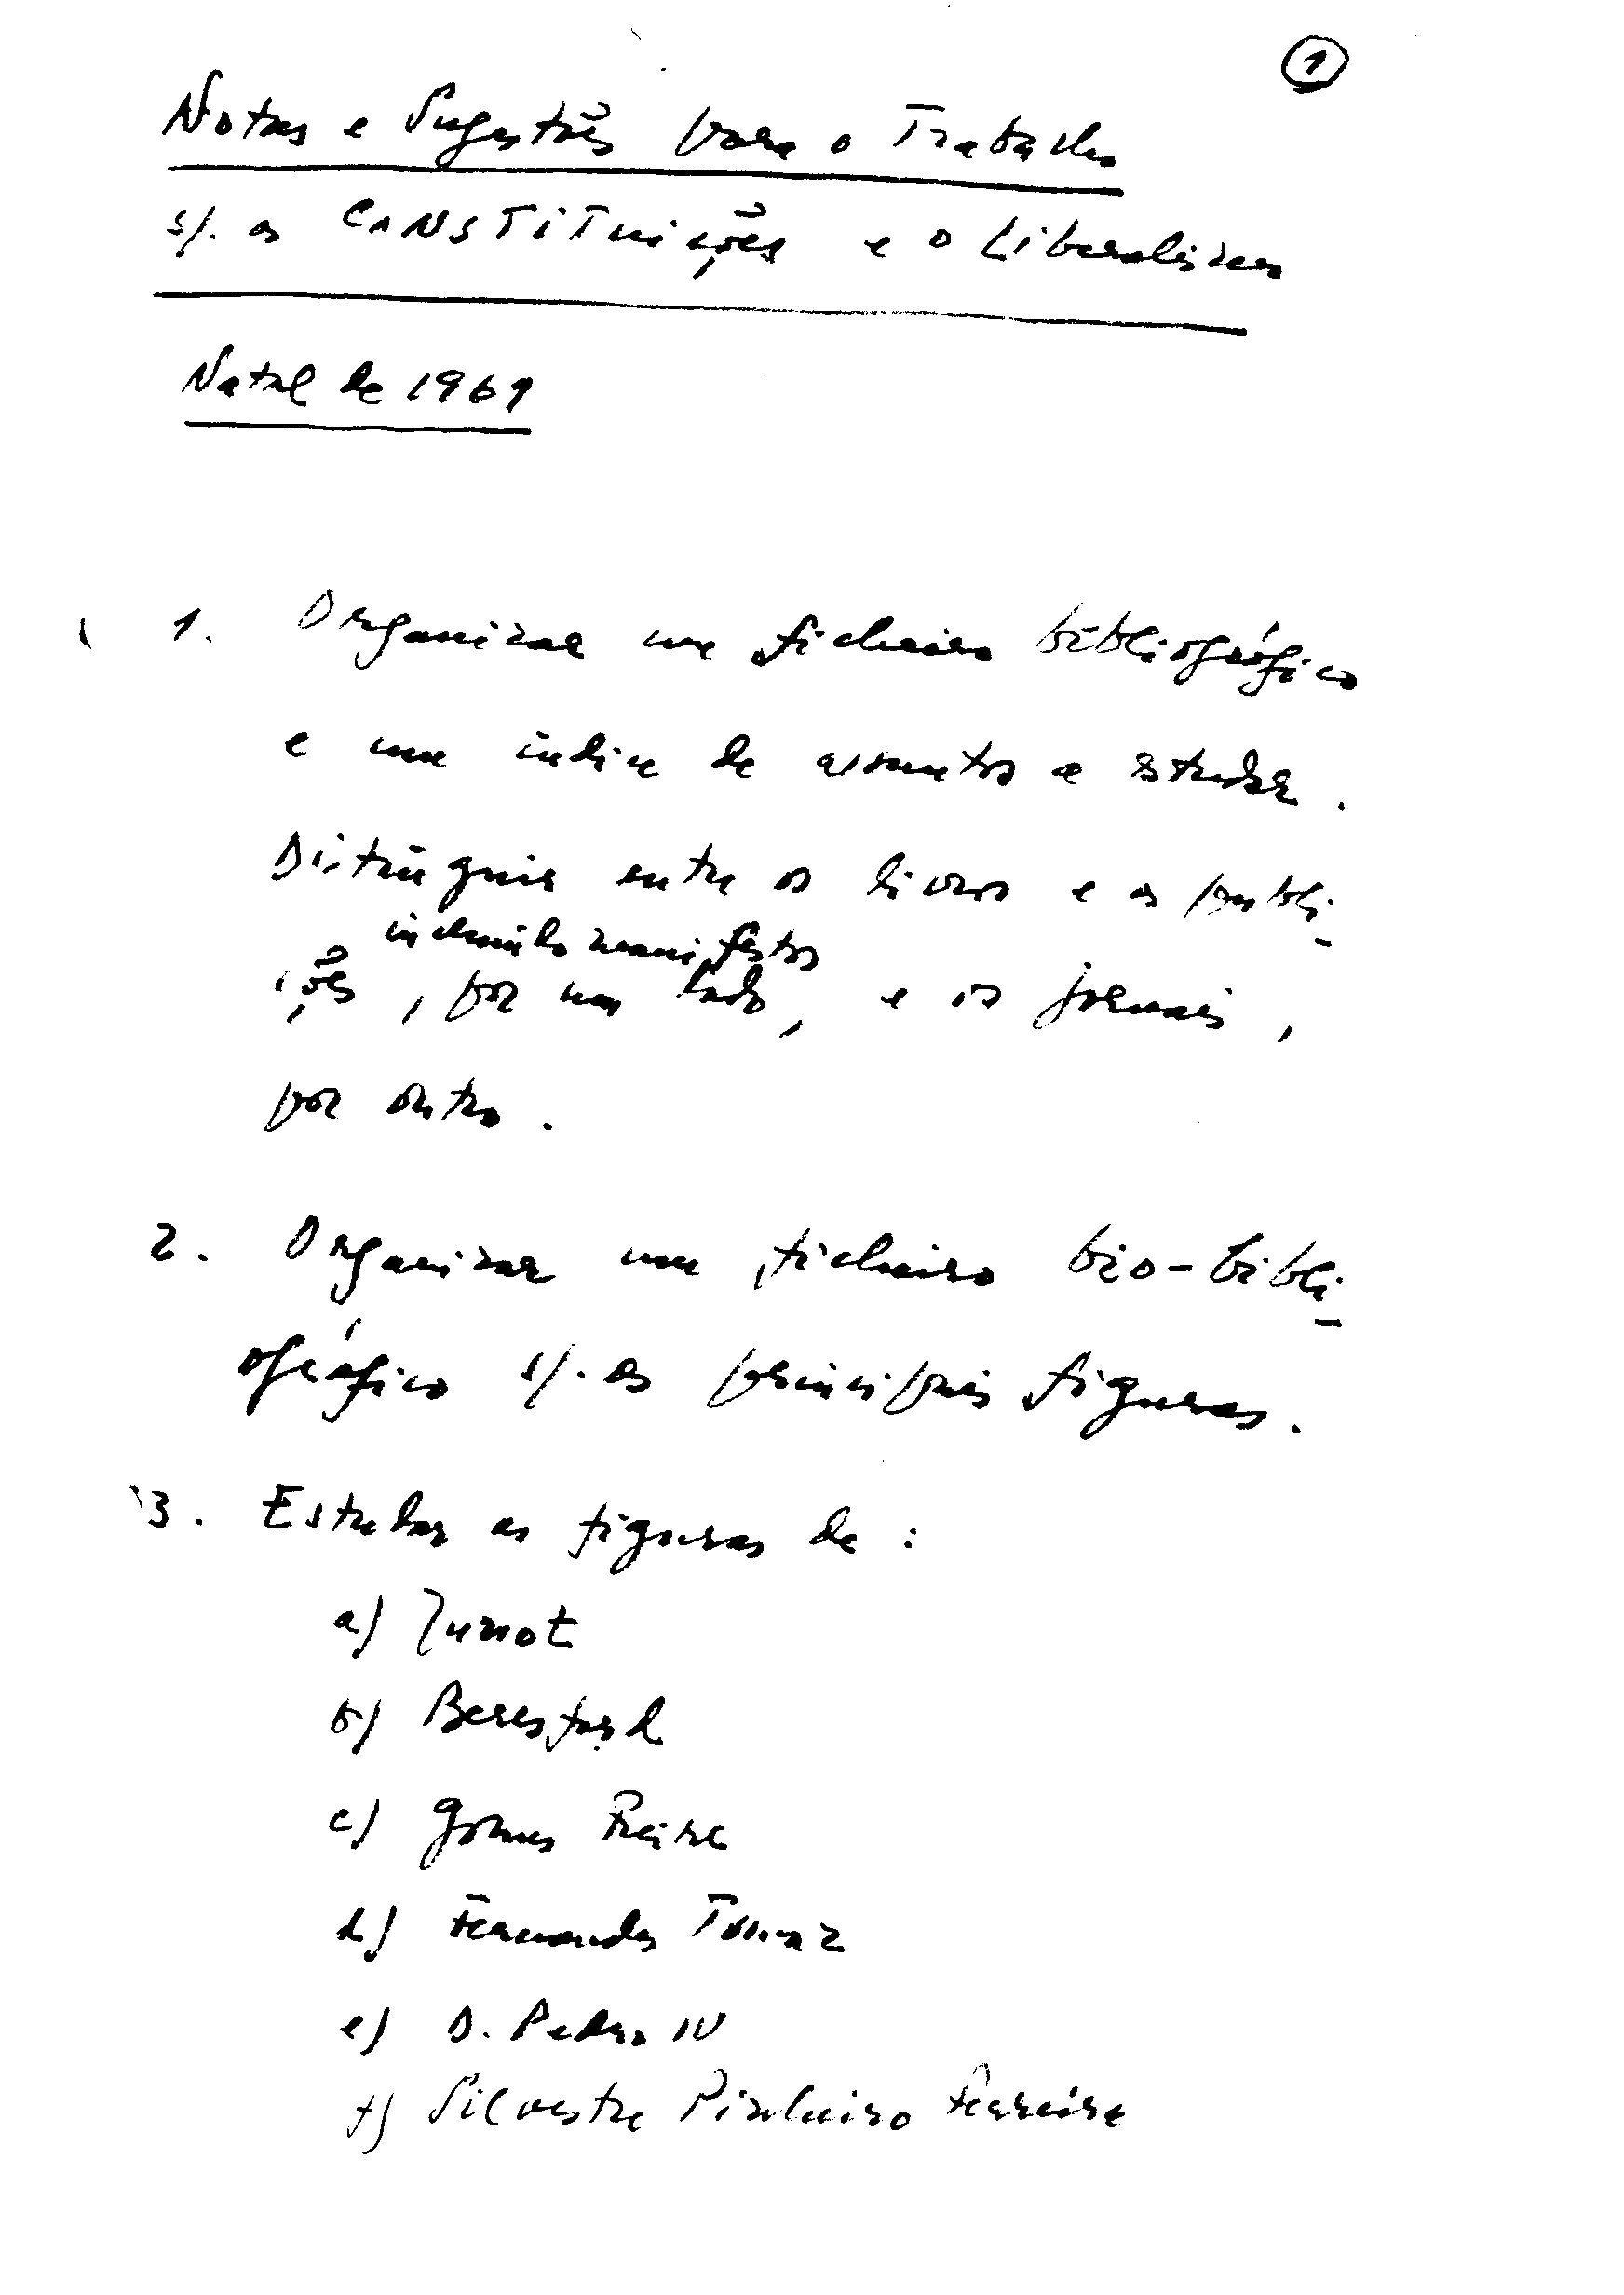 1
Notas e Sugestões para o Trabalho
s/. as CONSTITUIções e o Liberalismo
Natal de 1969
1. Organizar um ficheiro bibliográfico
e um índice de assuntos a estudar.
Distinguir entre os livros e as publi-
incluindo manifestos
ções, por um lado, e os jornais,
por outro.
2. Organizar um ficheiro bio-bibli-
ográfico s/. as principais figuras.
3. Estudar as figuras de :
a) Junot
b) Beresford
c) Gomes Freire
d) Fernandes Tomaz
e) D. Pedro IV
f) Silvestre Pinheiro Ferreira